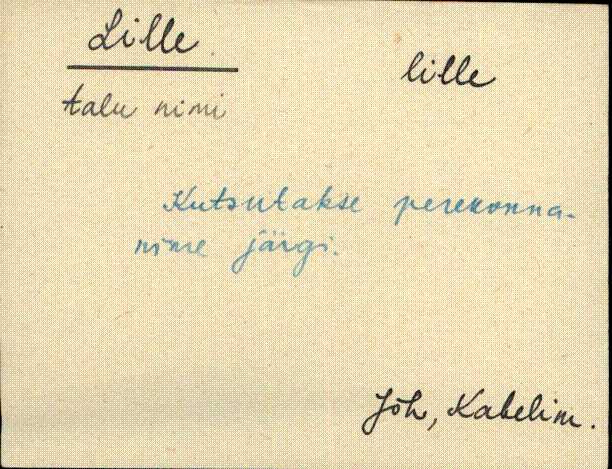 Lille.
lille
talu nimi
Kutsutakse perekonna-
nime järgi.
Jõh, Kabelim.